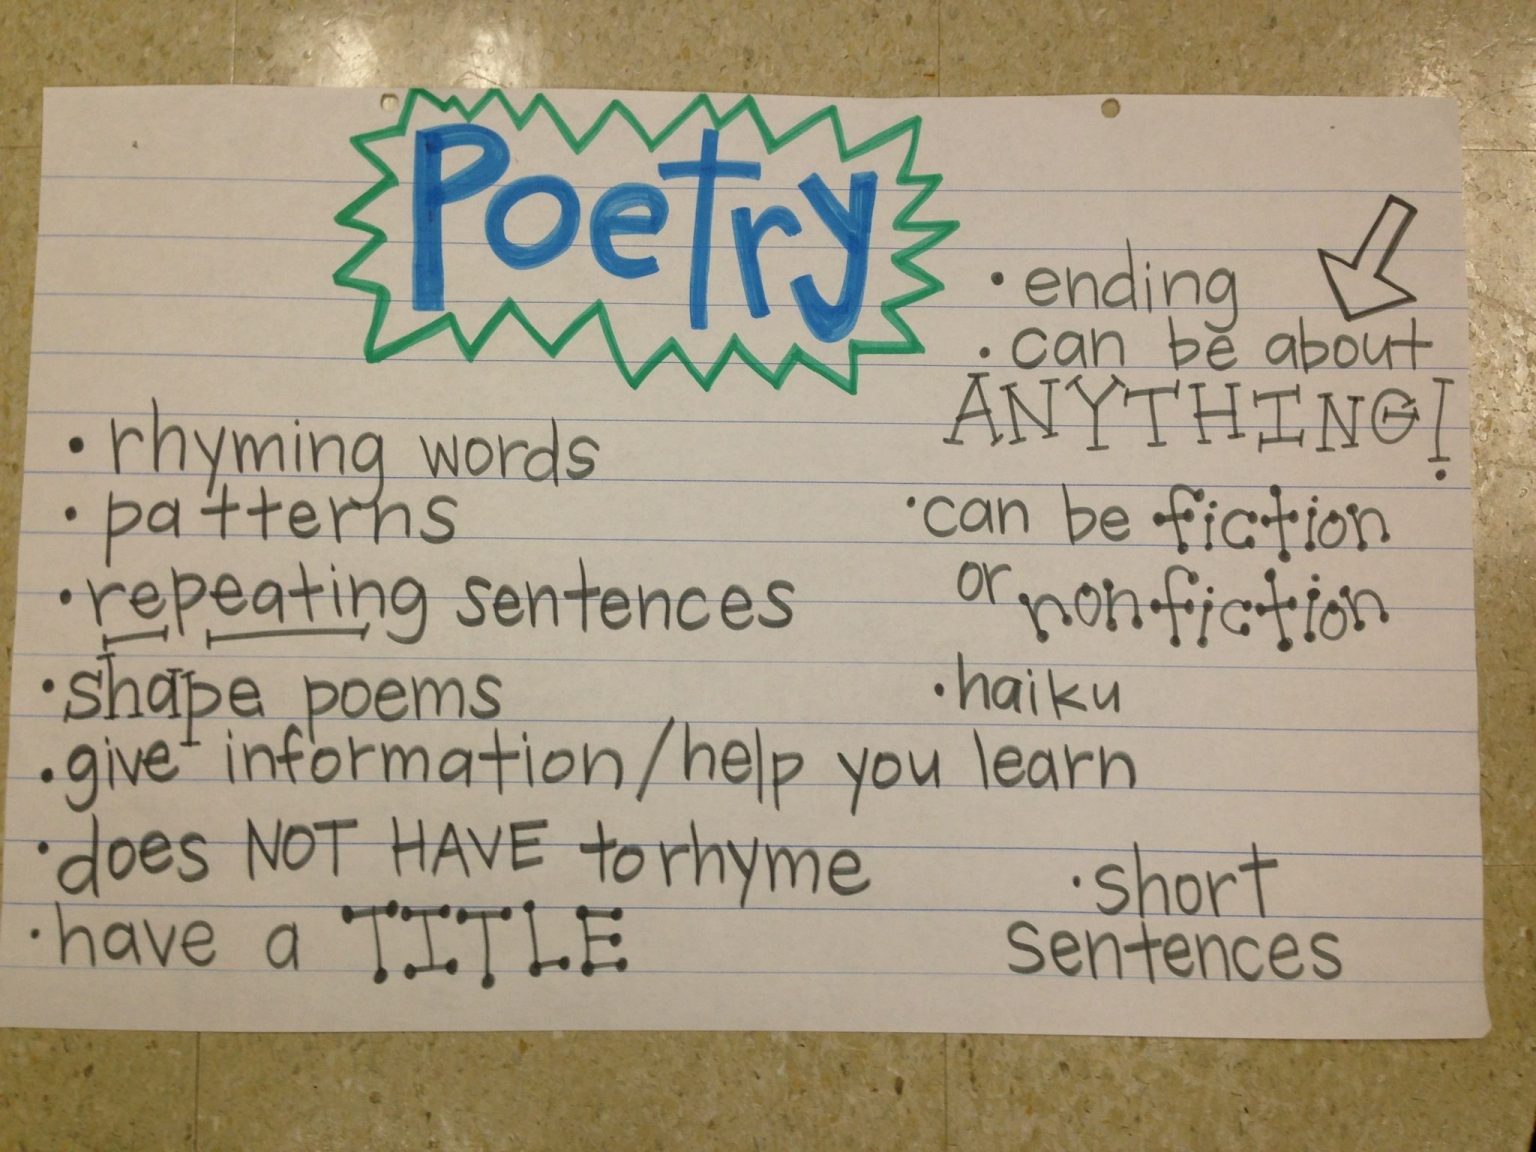 Poetry
• rhyming words
• patterns
• repeating sentences
• shape poems
• give information/help you learn
• does NOT HAVE to rhyme
• have a TITLE
• ending
• can be about
ANYTHING!
• can be fiction
or nonfiction
• haiku
• short
sentences